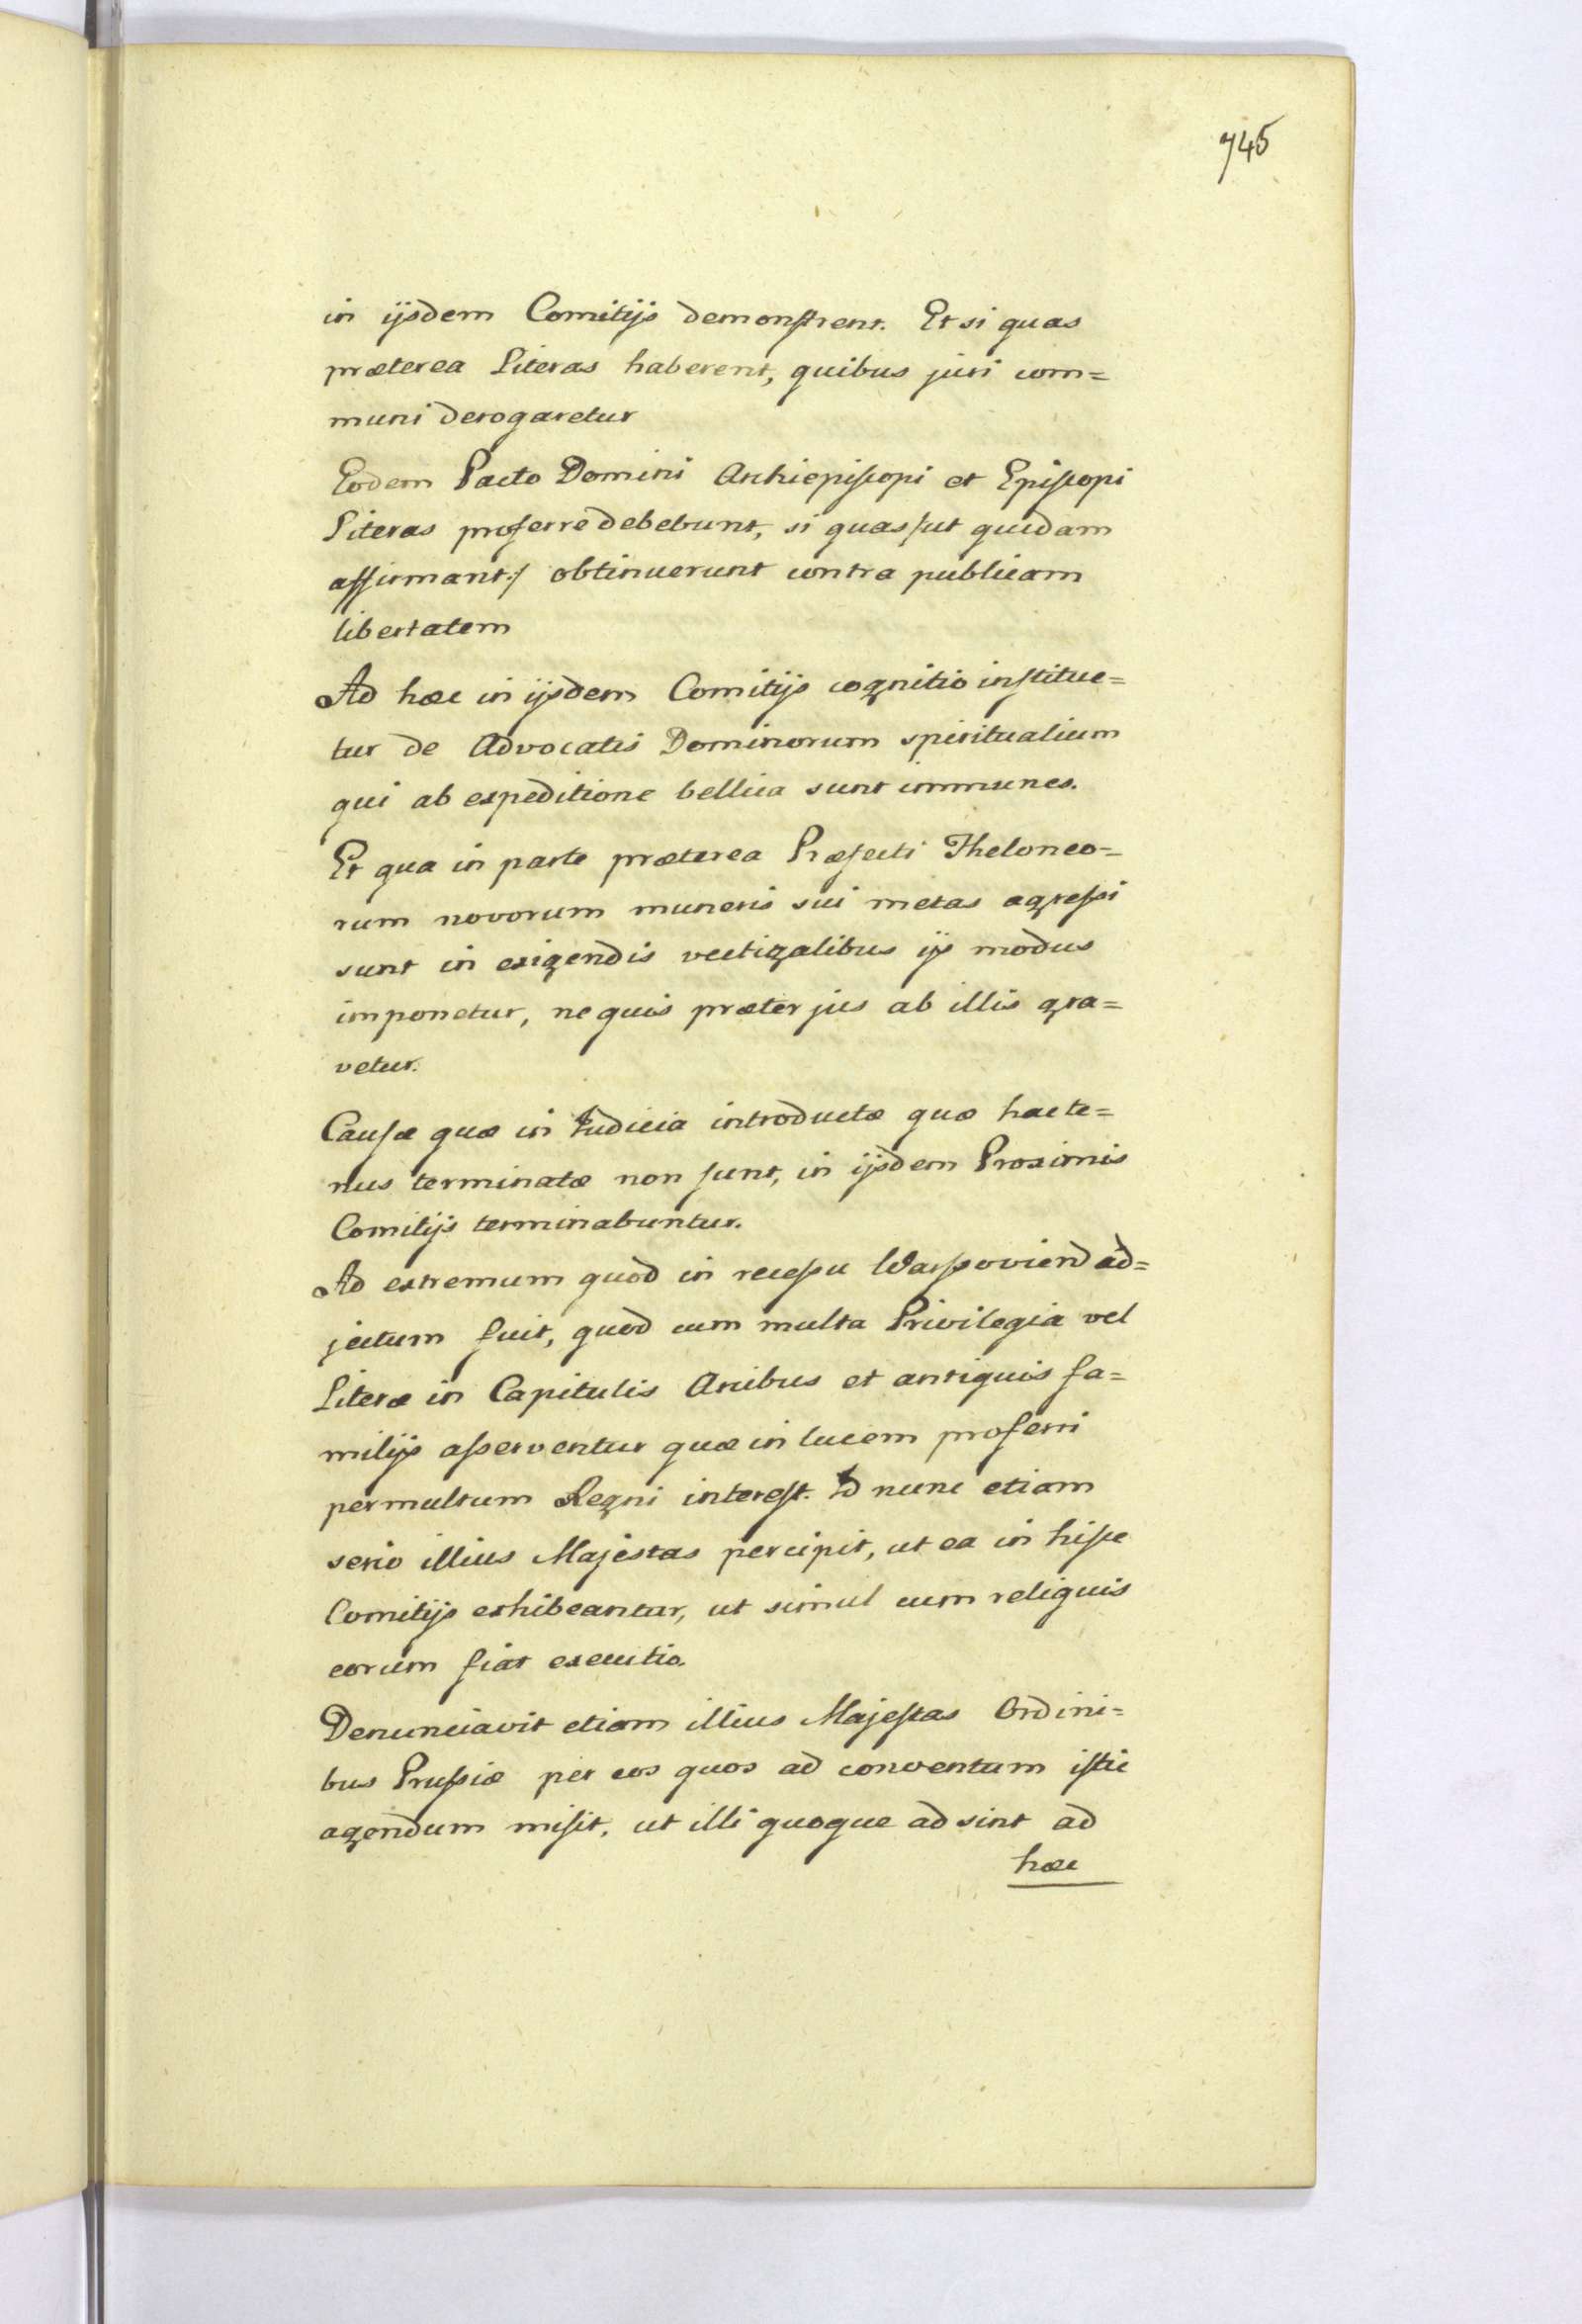 745
in ijsdem Comitijs demonstrent. Et si quas
præterea Literas haberent, quibus juri com=
muni derogaretur
Eodem Pacto Domini Archiepiscopi et Episcopi
Literas proferre debebunt, si quas /ut quidam
affirmant:/ obtinuerunt contra publicam
libertatem
Ad hæc in ijsdem Comitijs cognitio institue=
tur de Advocatis Dominorum spiritualium
qui ab expeditione bellica sunt immunes.
Et qua in parte præterea Præfecti Theloneo=
rum novorum muneris sui metas agressi
sunt in exigendis vectigalibus ijs modus
imponetur, ne quis præter jus ab illis gra=
vetur.
Causæ quæ in Judicia introductæ quæ hacte=
nus terminatæ non sunt, in ijsdem Proximis
Comitijs terminabuntur.
Ad extremum quod in recessu Warssoviend ad=
jectum fuit, quod cum multa Privilegia vel
Literæ in Capitulis Arcibus et antiquis fa=
milijs asserventur quæ in lucem proferri
permultum Regni interest. Id nunc etiam
serio illius Majestas percipit, ut ea in hisce
Comitijs exhibeantur, ut simul cum reliquis
eorum fiat executio.
Denunciavit etiam illius Majestas Ordini=
bus Prussiæ per eos quos ad conventum istic
agendum misit, ut illi quoque adsint ad
hæc